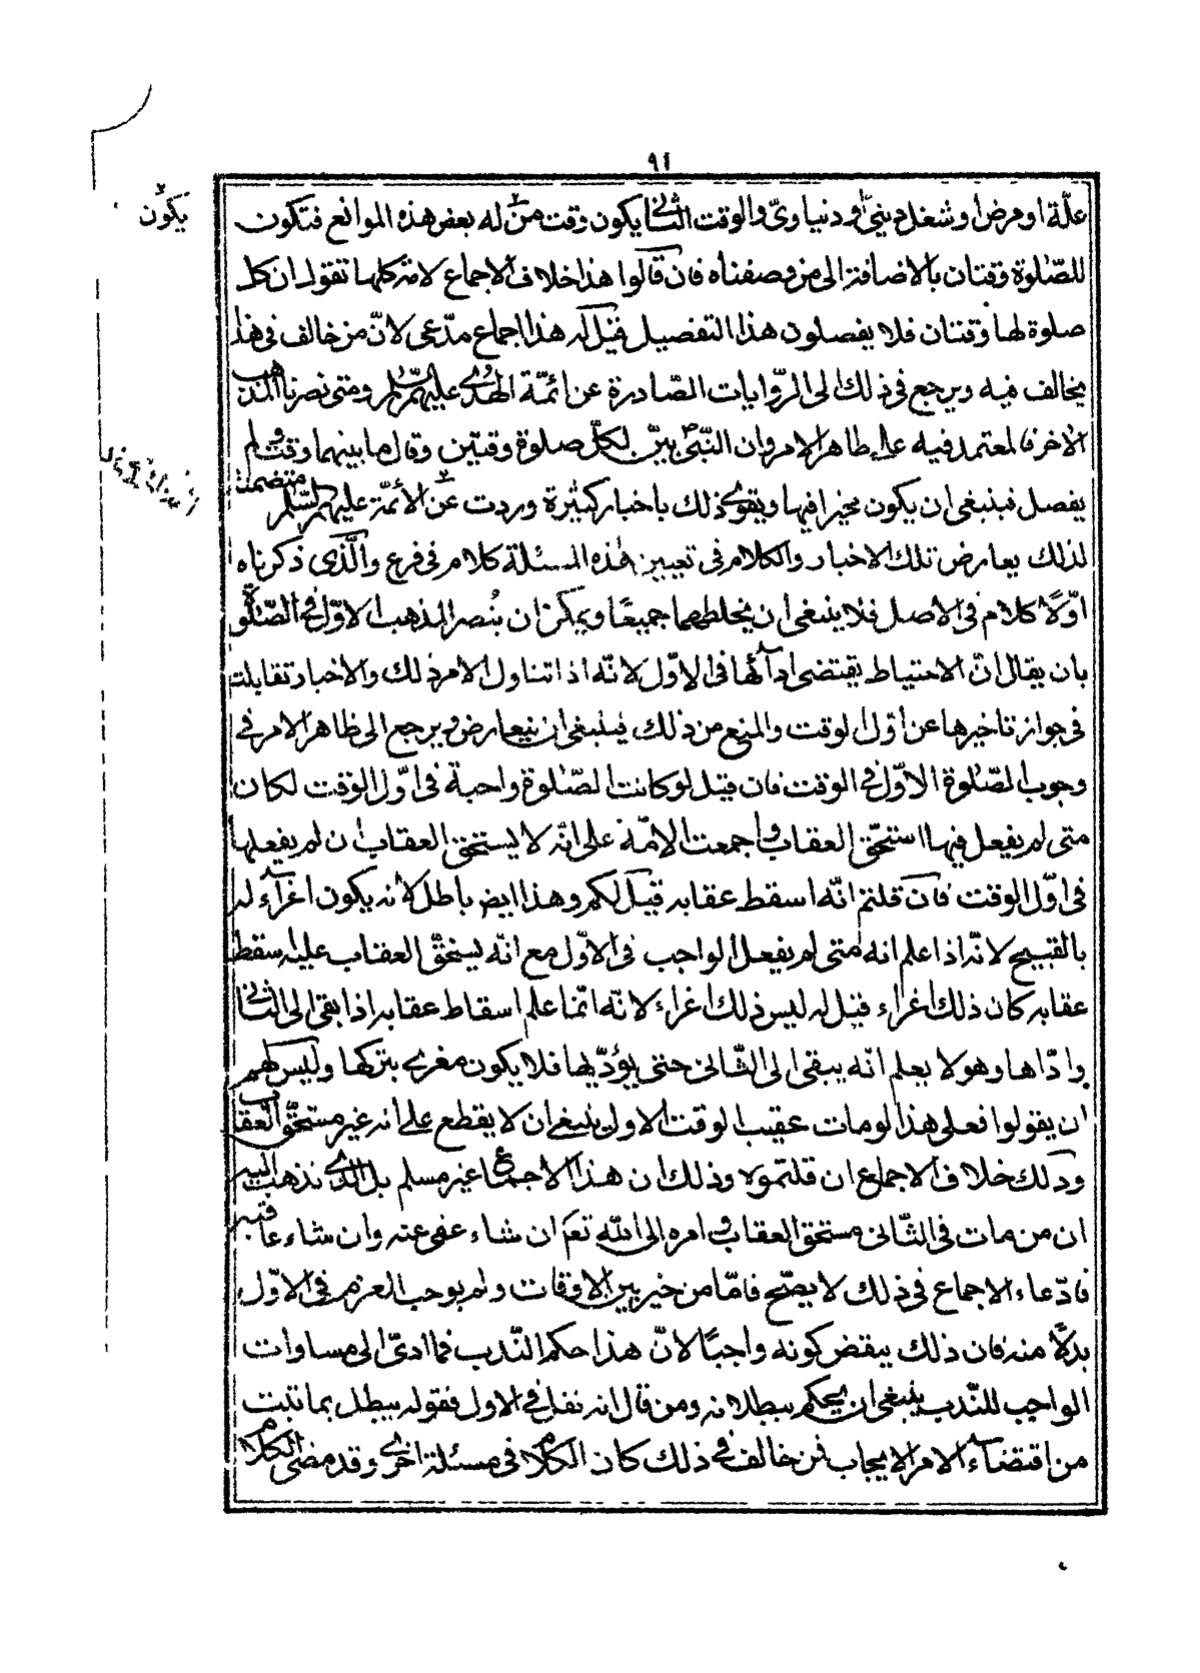 ٩٤
علّة او مرض او شغل دينیّ او دنياویّ والوقت الثانی يكون وقت من له بعض هذه الموانع فتكون
يكون
للصّلوة وقتان بالاضافة الى من وصفناه فان قالوا هذا خلاف الاجماع لامّة كلها تقول ان كل
صلوة لها وقتان فلا يفصلون هذا التفصيل قيل له هذا اجماع مدّعى لانّ من خالف فی هذا
يخالف فيه ويرجع فی ذلك الى الرّوايات الصّادرة عن ائمّة الهُدى عليهم السّلم ومتى نصرنا المذهب
الاخر فالمعتمد فيه على ظاهر الامر وان النّبیّ ص بيّن لكلّ صلوة وقتين وقال ما بينهما وقت ولم
يفصل فينبغی ان يكون مخيرا فيها ويقوى ذلك باخبار كثيرة وردت عن الأئمّة عليهم السّلم متضمنة
لذلك يعارض تلك الاخبار والكلام فی تعيين هذه المسئلة كلام فی فرع والّذی ذكرناه
اوّلاً كلام فی الاصل فلا ينبغی أن يخلطهما جميعًا ويمكن ان يُنصر المذهب الاوّل فی الصّلوة
بان يقال انّ الاحتياط يقتضی ادآئها فی الاوّل لانّه اذا تناول الامر ذلك والاخبار تقابلت
فی جواز تاخيرها عن أوّل الوقت والمنع من ذلك فينبغی ان يتعارض ويرجع الى ظاهر الامر فی
وجوب الصّلوة الاوّل فی الوقت فان قيل لو كانت الصّلوة واجبة فی اوّل الوقت لكان
متى لم يفعل فيها استحقّ العقاب واجمعت الامّة على انّه لا يستحق العقاب ان لم يفعلها
فی اوّل الوقت فان قلتم انّه اسقط عقابه قيل لكم وهذا ايض باطل لانه يكون اغرآء له
بالقبيح لانّه اذا علم انه متى لم يفعل الواجب فی الاوّل مع انّه يستحقّ العقاب عليه سقط
عقابه كان ذلك اغراء قيل له ليس ذلك اغراء لانّه انّما علم اسقاط عقابه اذا بقى الى الثانی
وادّاها وهو لا يعلم انّه يبقى الى الثّانی حتى يؤدّيها فلا يكون مغرى بتركها وليس لهم
ان يقولوا فعلى هذا لو مات عقيب الوقت الاول ينبغی ان لا يقطع على انه غير مستحقّ العقاب
وذلك خلاف الاجماع ان قلتموه وذلك ان هذا الاجماع غير مسلم بل الّذی نذهب اليه
ان من مات فی الثّانی مستحق العقاب وامره الى الله تعم ان شاء عفى عنه وان شاء عاقبه
فادّعاء الاجماع فی ذلك لا يصّح فامّا من خير بين الاوقات ولم يوجب العزم فی الاوّل
بدلاً منه فان ذلك ينقض كونه واجبًا لانّ هذا حكم النّدب فما ادىّ الى مساوات
الواجب للنّدب ينبغی ان يحكم ببطلانه ومن قال انه نفل فی الاول فقوله يبطل بما تثبت
من اقتضآء الامر الايجاب فمن خالف فی ذلك كان الكلام فی مسئلة اخرى وقد مضى الكلام